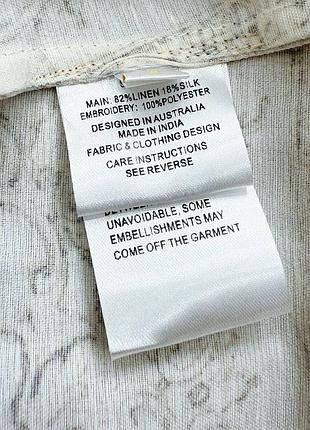 MAIN: 82%LINEN 18%SILK
EMBROIDERY: 100%POLYESTER
DESIGNED IN AUSTRALIA
MADE IN INDIA
FABRIC & CLOTHING DESIGN
CARE INSTRUCTIONS
SEE REVERSE
UNAVOIDABLE, SOME
EMBELLISHMENTS MAY
COME OFF THE GARMENT